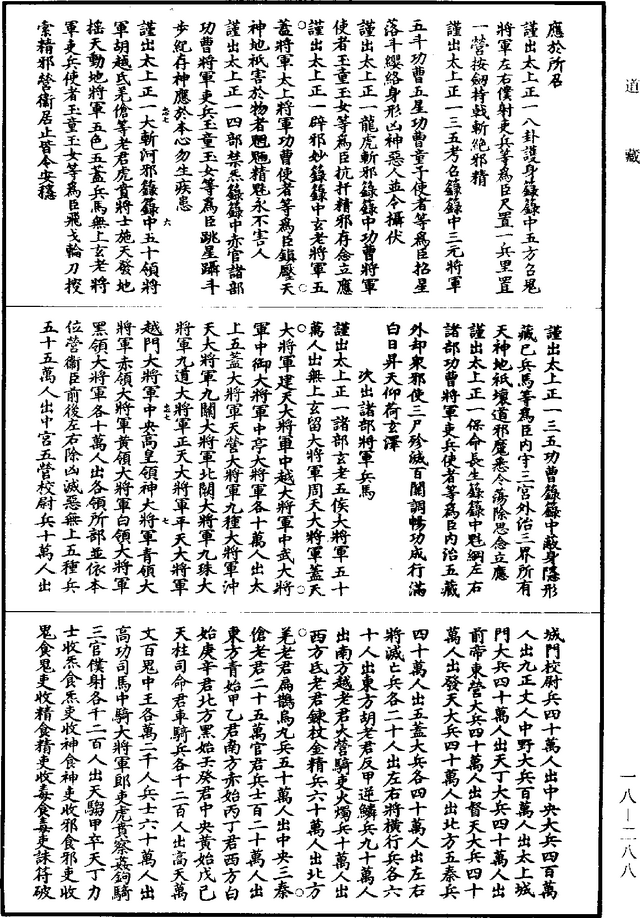 道藏
應於所召
謹出太上正一八卦護身籙籙中五方召鬼
將軍左右僕射吏兵等為臣尺置一兵里置
一營按劒持戟斬絕邪精
謹出太上正一三五考召籙籙中三元將軍
五斗功曹五星功曹童子使者等為臣招星
落斗纓絡身形凶神惡人並令攝伏
謹出太上正一龍虎斬邪籙籙中功曹將軍
使者玉童玉女等為臣抗扞精邪存念立應
謹出太上正一辟邪妙籙籙中玄老將軍五
蓋將軍太上將軍功曹使者等為臣鎮壓天
神地祇害於物者魍魎精魅永不害人
謹出太上正一四部禁炁籙籙中赤官諸部
功曹將軍吏兵玉童玉女等為臣跳星躡斗
步紀存神應於本心勿生疾患
謹出太上正一大斬河邪籙籙中五十領將
軍胡越氐羌傖等老君虎賁將士施天發地
搖天動地將軍五色五蓋兵馬無上玄老將
軍吏兵使者玉童玉女等為臣飛戈輪刀搜
索精邪營衛居止皆令安穩
謹出太上正一三五功曹籙籙中蔽身隱形
藏已兵馬等為臣內守三宮外治三界所有
天神地祇壞道邪魔悉令蕩除思念立應
謹出太上正一保命長生籙籙中魁綱左右
諸部功曹將軍吏兵使者等為臣內治五藏
外却衆邪使三尸殄滅百關調暢功成行滿
白日昇天仰荷玄澤
次出諸部將軍兵馬
謹出太上正一諸部玄老五侯大將軍五十
萬人出無上玄留大將軍周天大將軍蓋天
大將軍建天大將軍中越大將軍中武大將
軍中御大將軍中亭大將軍各十萬人出太
上五蓋大將軍天營大將軍九種大將軍沖
天大將軍九關大將軍北關大將軍九珠大
將軍九道大將軍正天大將軍平天大將軍
越門大將軍中央高皇領神大將軍青領大
將軍赤領大將軍黃領大將軍白領大將軍
黑領大將軍各十萬人出各領所部並依本
位營衛臣前後左右除凶滅惡無上五種兵
五十五萬人出中宮五營校尉兵十萬人出
城門校尉兵四十萬人出中央大兵四百萬
人出九正丈人中野大兵百萬人出太上城
門大兵四十萬人出天丁大兵四十萬人出
前帝東營大兵四十萬人出督天大兵四十
萬人出發天大兵四十萬人出北方五秦兵
四十萬人出五蓋大兵各四十萬人出左右
將滅亡兵各二十人出左右將橫行兵各六
十人出東方胡老君反甲逆鱗兵九十萬人
出南方越老君大營騎吏火燭兵十萬人出
西方氐老君鍊杖金精兵六十萬人出北方
羌老君扁鵲烏丸兵五十萬人出中央三秦
傖老君二十五萬官君兵士百二十萬人出
東方青始甲乙君南方赤始丙丁君西方白
始庚辛君北方黑始壬癸君中央黃始戊己
天柱司命君車騎兵各千二百人出高天萬
文百鬼中王各萬二千人兵士六十萬人出
高功司馬中騎大將軍郎吏虎賁察姦鉤騎
三官僕射各千二百人出天騶甲卒天丁力
士收炁食炁吏收神食神吏收邪食邪吏收
鬼食鬼吏收精食精吏收毒食毒吏誅符破
一八—二八八